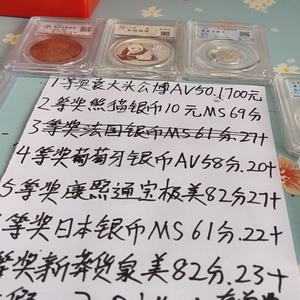 1等奖袁大头公博AV50.1700元
2等奖熊猫银币10元MS69分
3等奖法国银币MS61分.27+
4等奖葡萄牙银币AV58分.20+
5等奖康熙通宝极美82分27+
等奖日本银币MS61分.22+
等奖新莽货泉美82分.23+